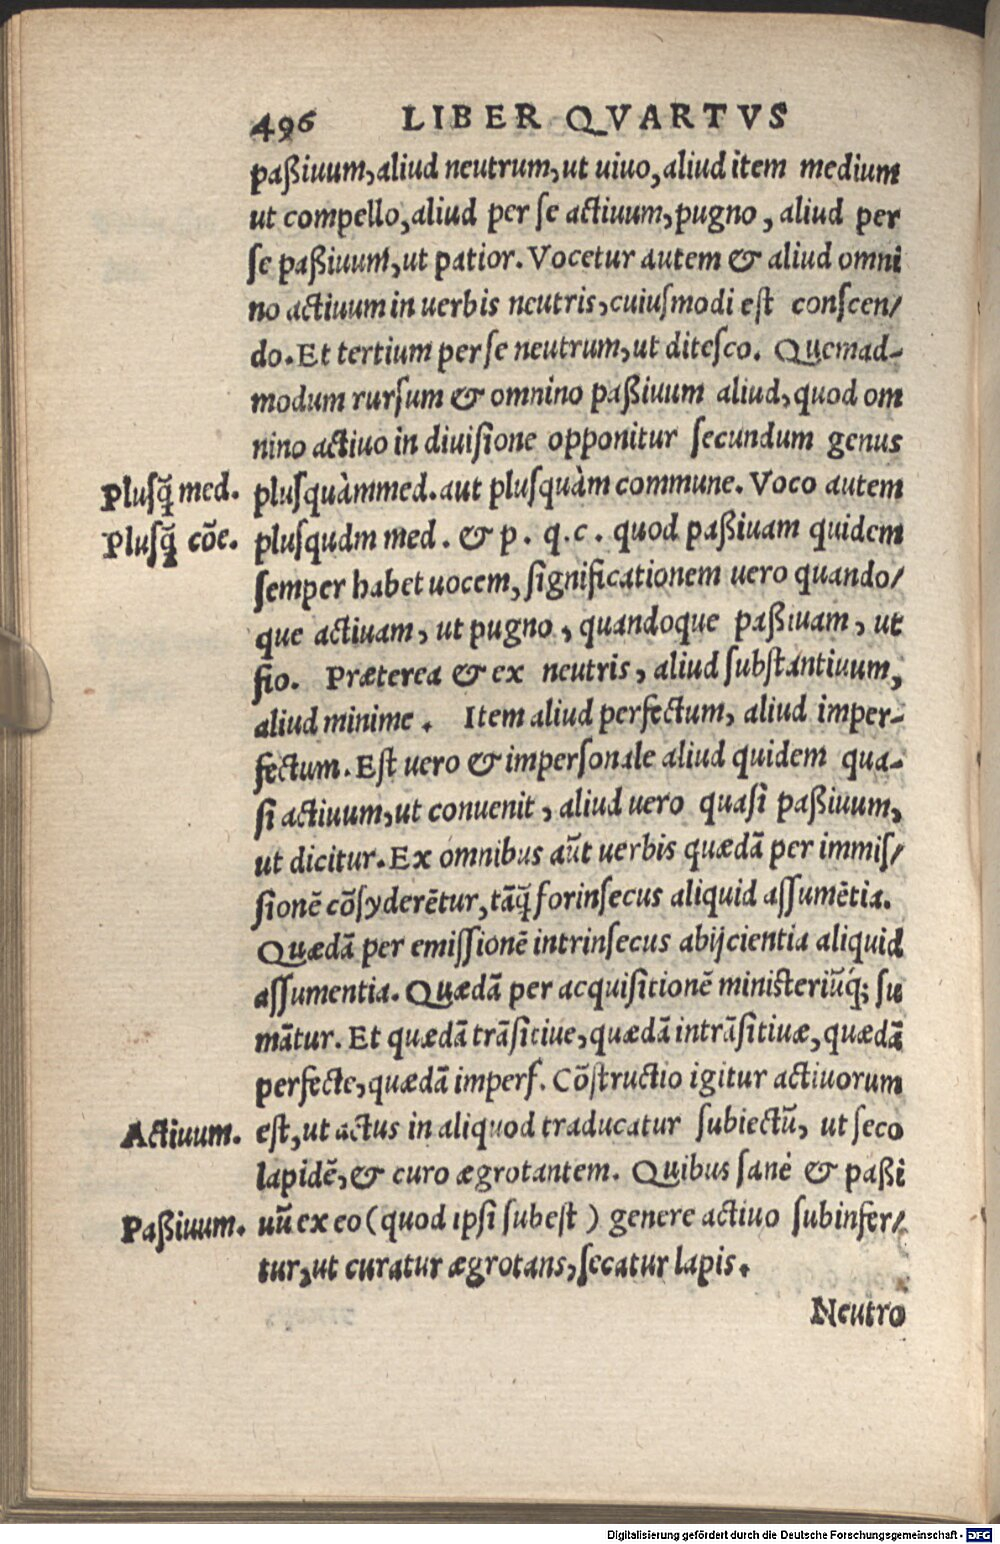 496 LIBER QVARTVS
paßiuum, aliud neutrum, ut uiuo, aliud item medium
ut compello, aliud per se actiuum, pugno, aliud per
se paßiuum, ut patior. Vocetur autem & aliud omni
no actiuum in uerbis neutris, cuiusmodi est conscen/
do. Et tertium per se neutrum, ut ditesco. Quemad-
modum rursum & omnino paßiuum aliud, quod om
nino actiuo in diuisione opponitur secundum genus
Plusq̃ med. plusquàm med. aut plusquàm commune. Voco autem
Plusq̃ cõe. plusqudm med. & p. q. c. quod paßiuam quidem
semper habet uocem, significationem uero quando/
que actiuam, ut pugno, quandoque paßiuam, ut
fio. Præterea & ex neutris, aliud substantiuum,
aliud minime. Item aliud perfectum, aliud imper-
fectum. Est uero & impersonale aliud quidem qua-
si actiuum, ut conuenit, aliud uero quasi paßiuum,
ut dicitur. Ex omnibus aũt uerbis quædã per immis/
sionẽ cõsyderẽtur, tãq̃ forinsecus aliquid assumẽtia.
Quædã per emissionẽ intrinsecus abijcientia aliquid
assumentia. Quædã per acquisitionẽ ministeriũq́; su
mãtur. Et quædã trãsitiue, quædã intrãsitiuæ, quædã
perfecte, quædã imperf. Cõstructio igitur actiuorum
Actiuum. est, ut actus in aliquod traducatur subiectũ, ut seco
lapidẽ, & curo ægrotantem. Quibus sanè & paßi
Paßiuum. uũ ex eo (quod ipsi subest) genere actiuo subinfer/
tur, ut curatur ægrotans, secatur lapis.
Neutro
Digitalisierung gefördert durch die Deutsche Forschungsgemeinschaft - DFG